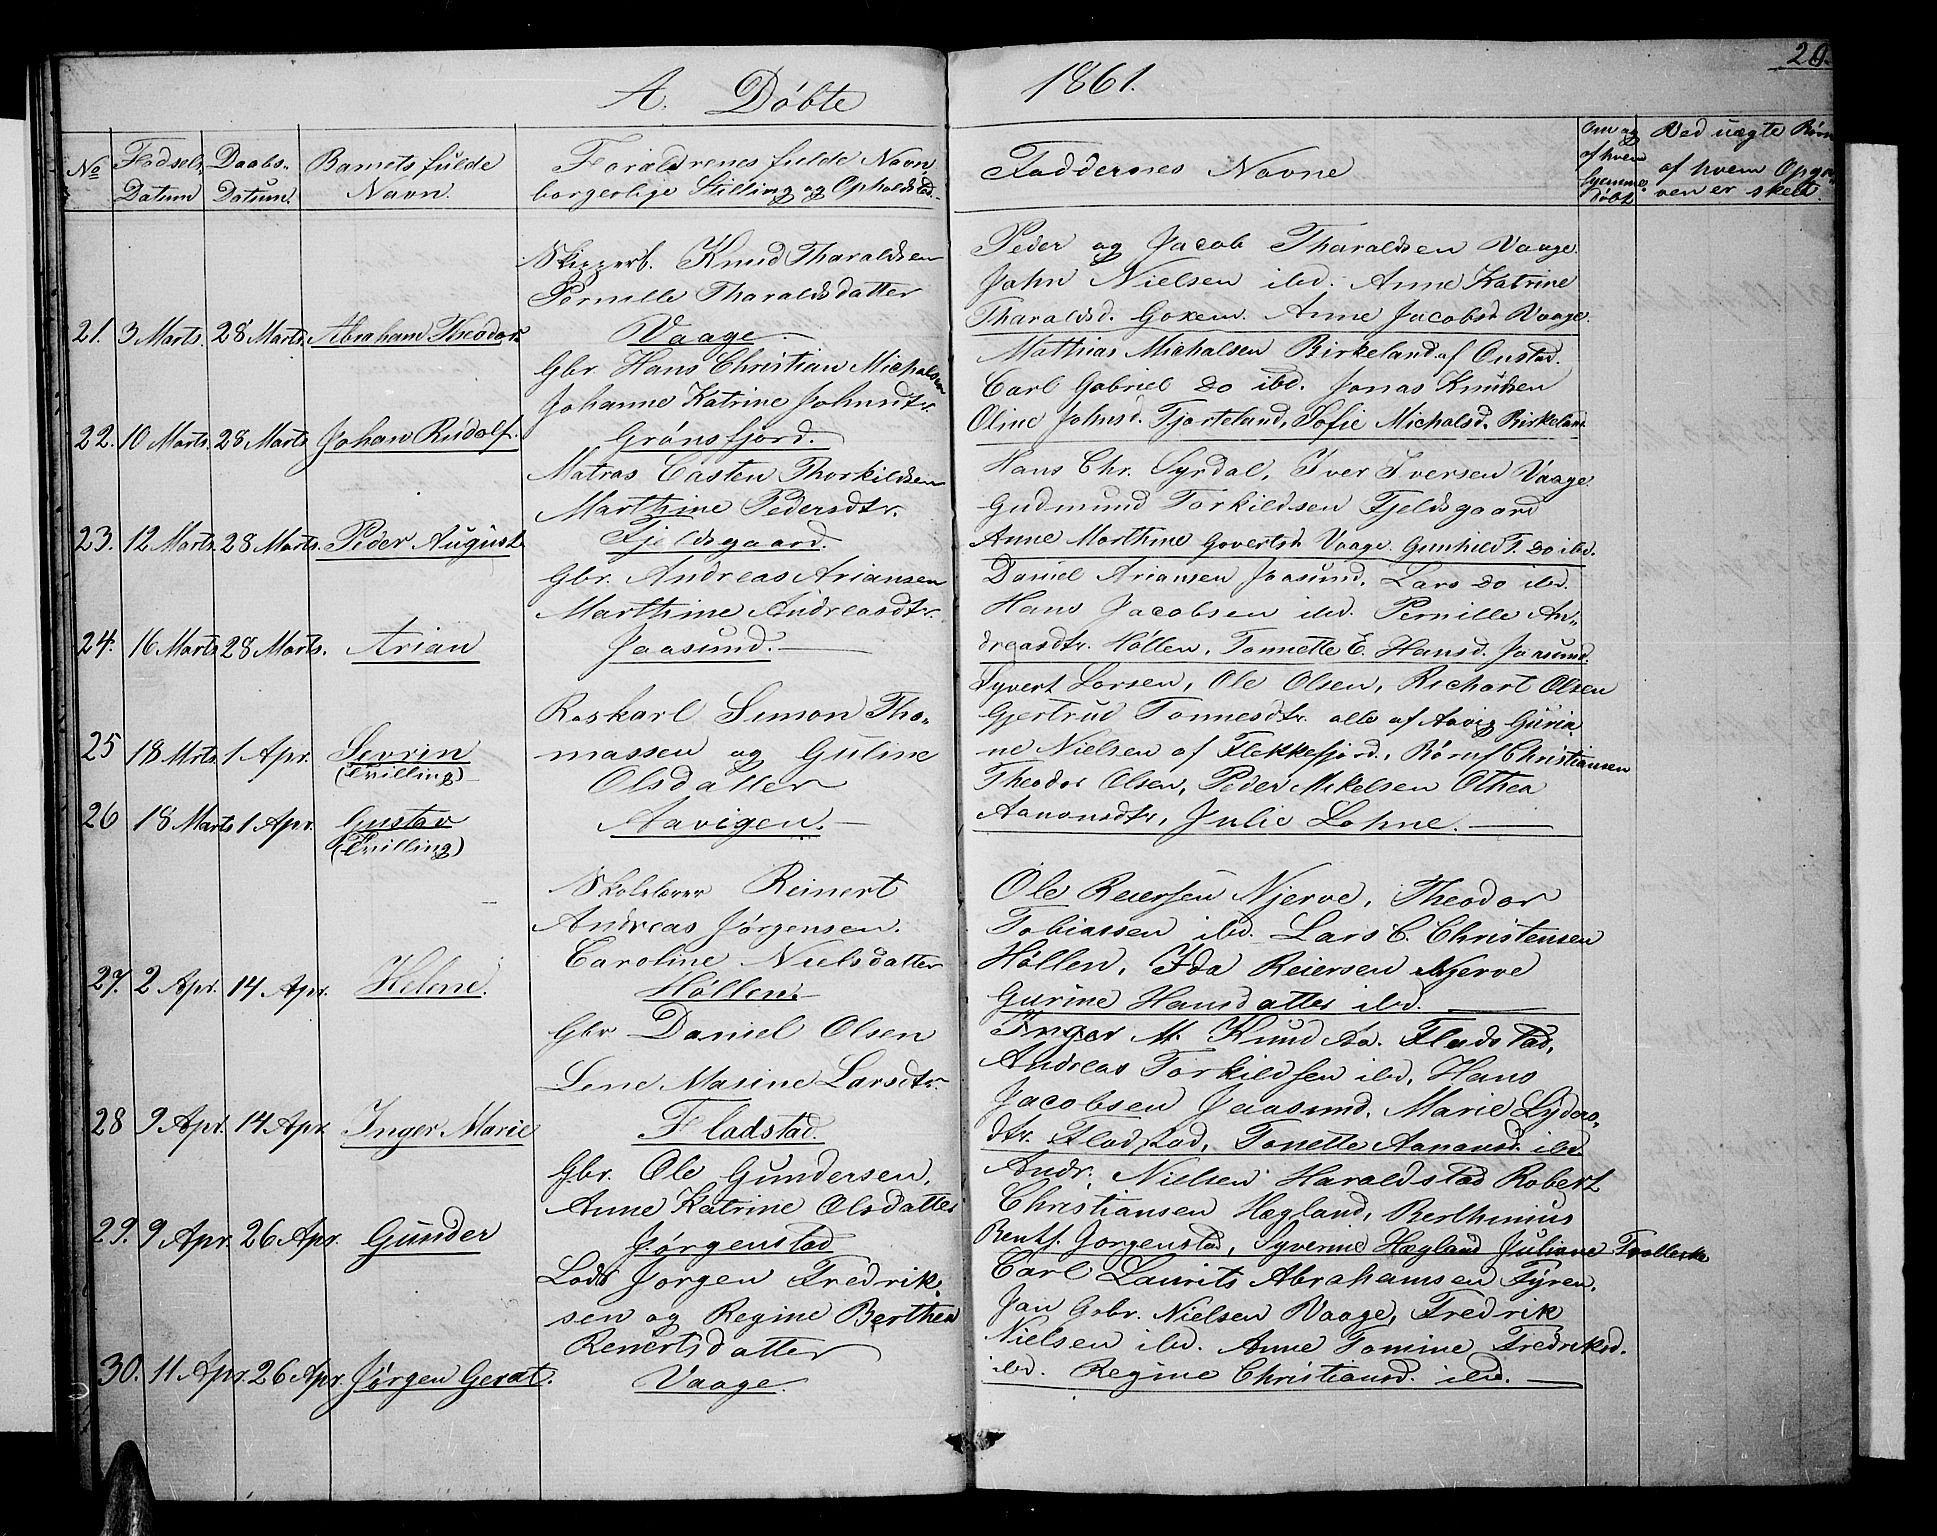 A. Døbte 1861. 20.
No
Fødsels-
Datum
Daabs-
Datum.
Barnets fulde
Navn.
Forældrenes fulde Navn,
borgerlige Stilling og Opholdsted.
Faddernes Navne
Om og
af hvem
hjemme-
døbt
Ved uægte Børn
af hvem Opga-
ven er skeet.
21. 3 Marts. 28 Marts. Abraham Theodor
Skipperb. Knud Tharaldsen
Pernille Tharaldsdatter
Vaage.
Peder og Jacob Tharaldsen Vaage.
John Nielsen ibd. Anne Katrine
Tharaldsd. Goxem. Anne Jacobsd Vaage.
22. 10 Marts. 28 Marts Johan Rudolf.
Gbr. Hans Christian Michalsen
Johanne Katrine Johnsdtr.
Grønsfjord.
Mathias Michalsen Birkeland af Onstad.
Carl Gabriel do ibd. Jonas Knudsen
Oline Johnsd. Tjorteland, Sofie Michalsd. Birkeland
23. 12 Marts. 28 Marts. Peder August
Matras Casten Thorkildsen
Marthine Pedersdtr.
Fjeldsgaard.
Hans Chr. Syrdal, Iver Iversen Vaage.
Gudmund Torkildsen Fjeldsgaard
Anne Marthine Govertsd. Vaage. Gunhild T. do ibd.
24. 16 Marts 28 Marts. Arian
Gbr. Andreas Ariansen
Marthine Andreasdtr.
Jaasund.
Daniel Ariansen Jaasund, Lars do ibd.
Hans Jacobsen ibd. Pernille An-
dreasdtr. Høllen, Tonnette E. Hansd. Jaasund.
25 18 Mrts. 1 Apr. Sevrin
(Tvilling)
26 18 Marts 1 Apr. Gustav
(Tvilling)
Raskarl Simon Tho-
massen og Guline
Olsdatter
Aavigen.
Syvert Larsen, Ole Olsen, Richart Olsen
Gjertrud Tonnesdtr. alle af Aavig Guria-
ne Nielsen af Flekkefjord, Børuf Christiansen
Theodor Olsen, Peder Mikelsen Othea
Aanonsdtr, Julie Lohne.
27. 2 Apr. 14 Apr. Helene.
Skolelærer Reinert
Andreas Jørgensen.
Caroline Nielsdatter
Høllen.
Ole Reiersen Njerve, Theodor
Tobiassen ibd. Lars C. Christensen
Høllen, Ida Reiersen Njerve
Gurine Hansdatter ibd.
28 9 Apr. 14 Apr. Inger Marie
Gbr Daniel Olsen
Lene Masine Larsdtr.
Fladstad.
Inger M. Knudsd. Fladstad,
Andreas Torkildsen ibd, Hans
Jacobsen Jaasund, Marie Lyders-
dtr. Fladstad, Tonette Aanonsd. ibd
29. 9 Apr. 26 Apr. Gunder
Gbr. Ole Gundersen,
Anne Katrine Olsdatter
Jørgenstad
Andr. Nielsen Haraldstad Robert
Christiansen Hægland, Berthinius
Bentsf. Jørgenstad, Syverine Hægland Juliane
30. 11 Apr. 26 Apr. Jørgen Gerat.
Lods Jørgen Fredrik-
sen og Regine Berthea
Renertsdatter
Vaage.
Carl Laurits Abrahamsen Fyren.
Jan Gabr. Nielsen Vaage, Fredrik
Nielsen ibd. Anne Tomine Fredriksd.
ibd. Regine Christiansd. ibd.